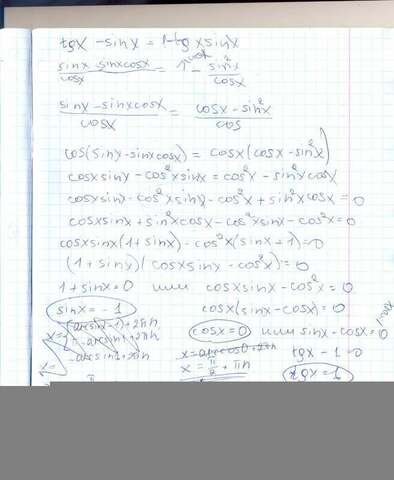 tgx - sinx = 1 - tgx sinx
sinx - sinxcosx / cosx = 1^cosx - sin²x / cosx
sinx - sinxcosx / cosx = cosx - sin²x / cos
cos(sinx - sinxcosx) = cosx(cosx - sin²x)
cosxsinx - cos²xsinx = cos²x - sin²xcosx
cosxsinx - cos²xsinx - cos²x + sin²xcosx = 0
cosxsinx + sin²xcosx - cos²xsinx - cos²x = 0
cosxsinx(1 + sinx) - cos²x(sinx + 1) = 0
(1 + sinx)(cosxsinx - cos²x) = 0
1 + sinx = 0 или cosxsinx - cos²x = 0
sinx = -1 cosx(sinx - cosx) = 0
cosx = 0 или sinx - cosx = 0
x = arccos0 + 2πn tgx - 1 = 0
x = π/2 + πn tgx = 1